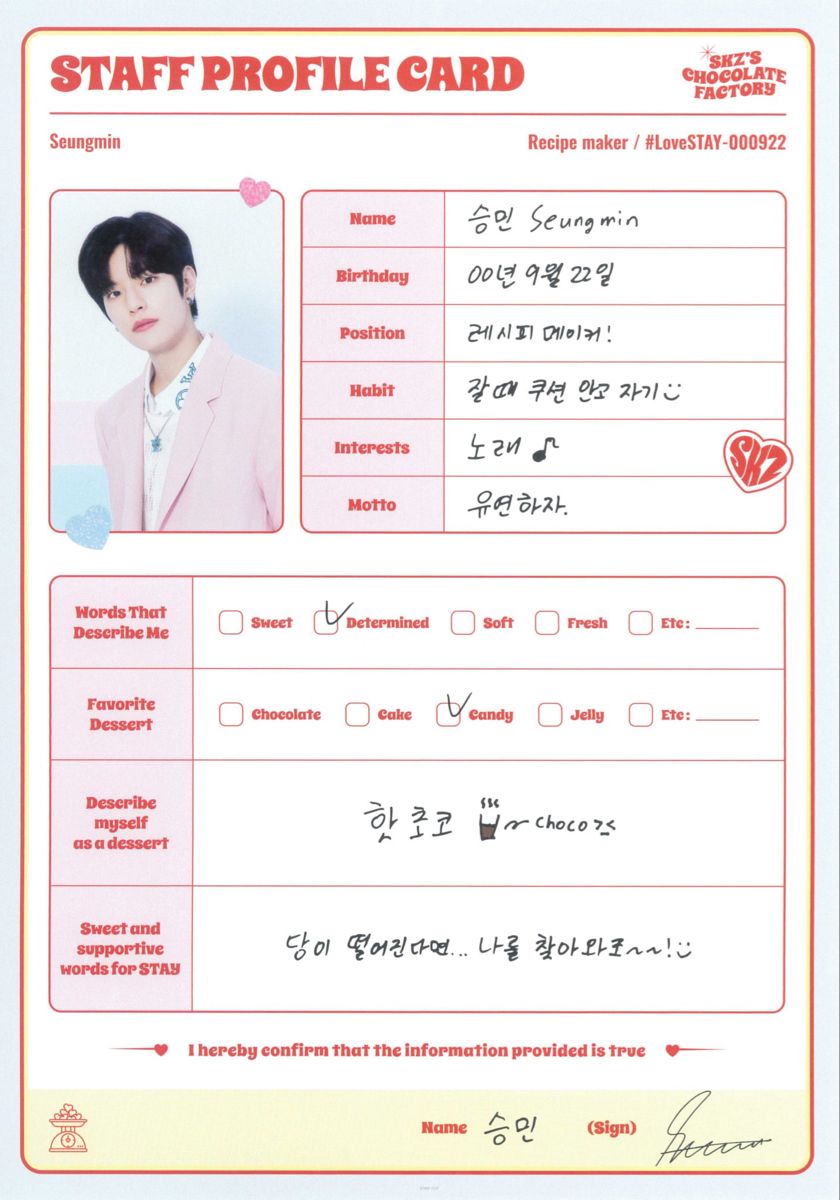 STAFF PROFILE CARD
SKZ'S
CHOCOLATE
FACTORY
Seungmin
Recipe maker / #LoveSTAY-000922
Name 승민 Seungmin
Birthday 00년 9월 22일
Position 레시피 메이커!
Habit 잘 때 쿠션 안고 자기
Interests 노래
SKZ
Motto 유연하자.
Words That
Describe Me
Sweet Determined Soft Fresh Etc:
Favorite
Dessert
Chocolate Cake Candy Jelly Etc:
Describe
myself
as a dessert
핫초코 ~choco
Sweet and
supportive
words for STAY
당이 떨어진다면... 나를 찾아와죠~~!
I hereby confirm that the information provided is true
Name 승민 (Sign)